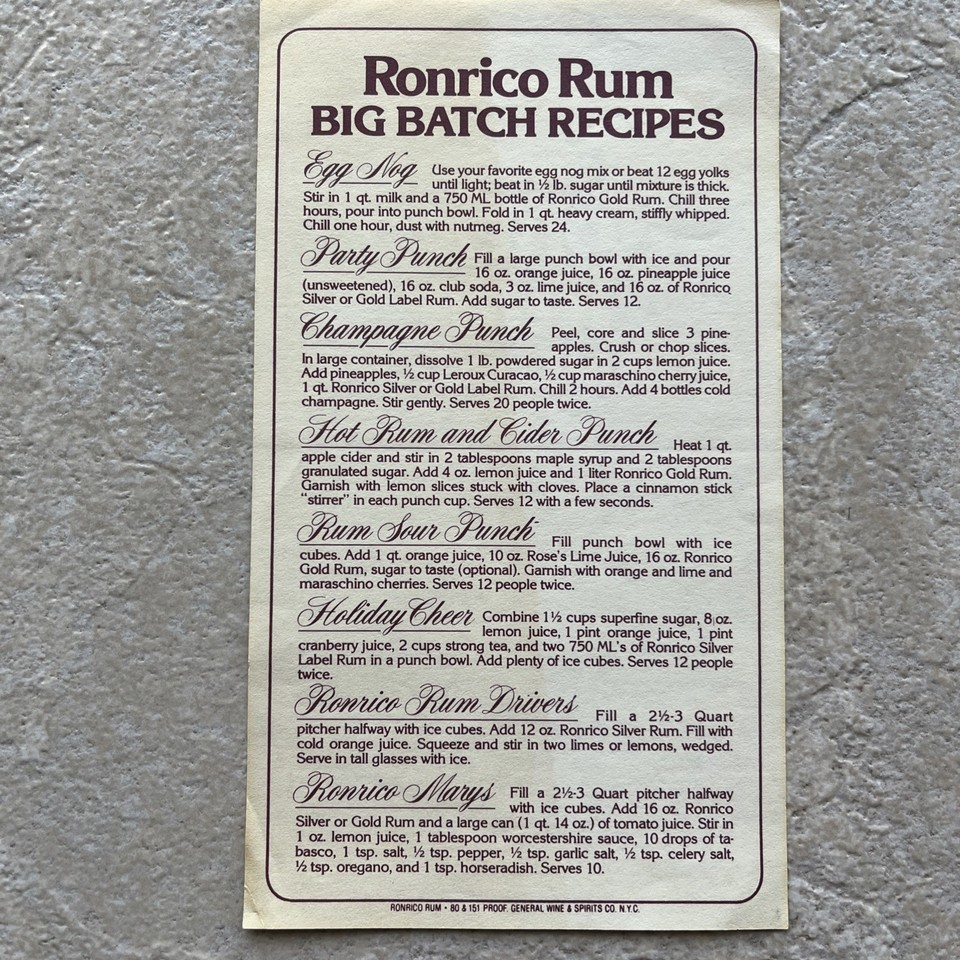 Ronrico Rum
BIG BATCH RECIPES
Egg Nog Use your favorite egg nog mix or beat 12 egg yolks
until light; beat in ½ lb. sugar until mixture is thick.
Stir in 1 qt. milk and a 750 ML bottle of Ronrico Gold Rum. Chill three
hours, pour into punch bowl. Fold in 1 qt. heavy cream, stiffly whipped.
Chill one hour, dust with nutmeg. Serves 24.
Party Punch Fill a large punch bowl with ice and pour
16 oz. orange juice, 16 oz. pineapple juice
(unsweetened), 16 oz. club soda, 3 oz. lime juice, and 16 oz. of Ronrico
Silver or Gold Label Rum. Add sugar to taste. Serves 12.
Champagne Punch Peel, core and slice 3 pine-
apples. Crush or chop slices.
In large container, dissolve 1 lb. powdered sugar in 2 cups lemon juice.
Add pineapples, ½ cup Leroux Curacao, ½ cup maraschino cherry juice,
1 qt. Ronrico Silver or Gold Label Rum. Chill 2 hours. Add 4 bottles cold
champagne. Stir gently. Serves 20 people twice.
Hot Rum and Cider Punch Heat 1 qt.
apple cider and stir in 2 tablespoons maple syrup and 2 tablespoons
granulated sugar. Add 4 oz. lemon juice and 1 liter Ronrico Gold Rum.
Garnish with lemon slices stuck with cloves. Place a cinnamon stick
"stirrer" in each punch cup. Serves 12 with a few seconds.
Rum Sour Punch Fill punch bowl with ice
cubes. Add 1 qt. orange juice, 10 oz. Rose's Lime Juice, 16 oz. Ronrico
Gold Rum, sugar to taste (optional). Garnish with orange and lime and
maraschino cherries. Serves 12 people twice.
Holiday Cheer Combine 1½ cups superfine sugar, 8 oz.
lemon juice, 1 pint orange juice, 1 pint
cranberry juice, 2 cups strong tea, and two 750 ML's of Ronrico Silver
Label Rum in a punch bowl. Add plenty of ice cubes. Serves 12 people
twice.
Ronrico Rum Drivers Fill a 2½-3 Quart
pitcher halfway with ice cubes. Add 12 oz. Ronrico Silver Rum. Fill with
cold orange juice. Squeeze and stir in two limes or lemons, wedged.
Serve in tall glasses with ice.
Ronrico Marys Fill a 2½-3 Quart pitcher halfway
with ice cubes. Add 16 oz. Ronrico
Silver or Gold Rum and a large can (1 qt. 14 oz.) of tomato juice. Stir in
1 oz. lemon juice, 1 tablespoon worcestershire sauce, 10 drops of ta-
basco, 1 tsp. salt, ½ tsp. pepper, ½ tsp. garlic salt, ½ tsp. celery salt,
½ tsp. oregano, and 1 tsp. horseradish. Serves 10.
RONRICO RUM • 80 & 151 PROOF. GENERAL WINE & SPIRITS CO. N.Y.C.